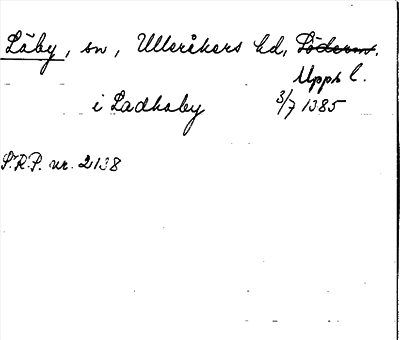 Läby, sn, Ulleråkers hd, Söderm.
Upps l.
i Ladhaby 3/7 1385
S.R.P. nr. 2138